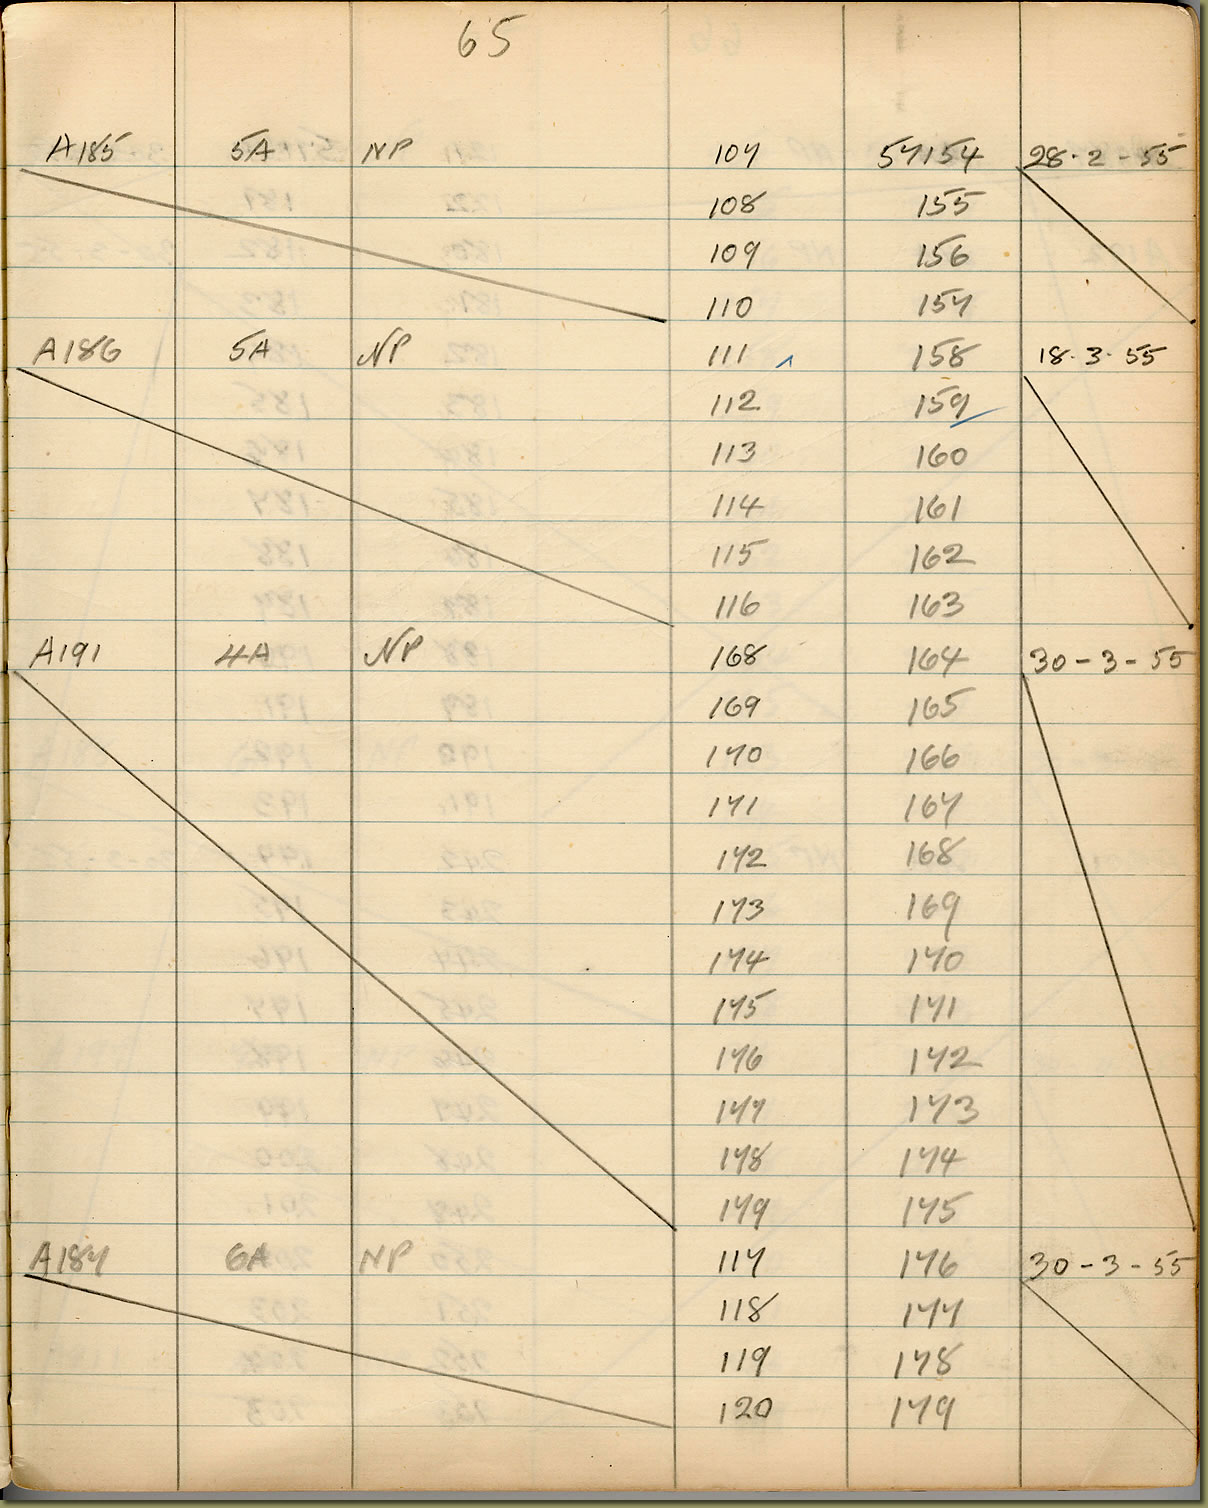 65
A185 5A NP 107 57154 28·2-55
108 155
109 156
110 157
A186 5A NP 111 158 18·3·55
112 159
113 160
114 161
115 162
116 163
A191 4A NP 168 164 30-3-55
169 165
170 166
171 167
172 168
173 169
174 170
175 171
176 172
177 173
178 174
179 175
A187 6A NP 117 176 30-3-55
118 177
119 178
120 179